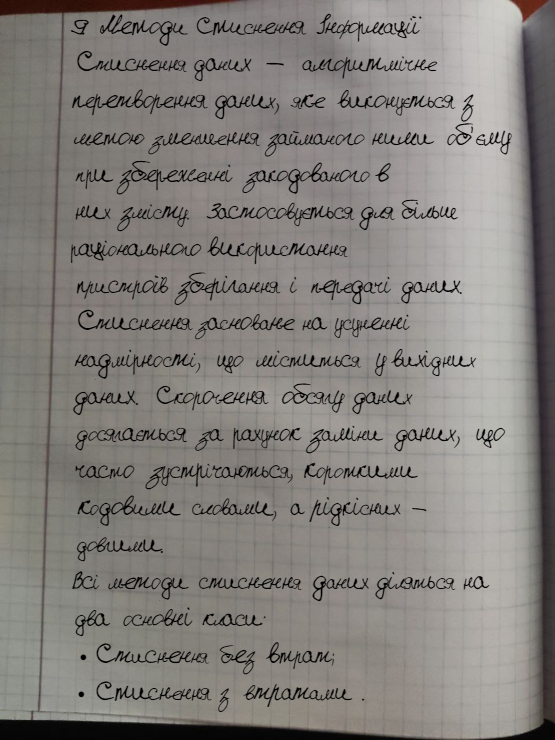 Я Методи Стиснення Інформації
Стиснення даних — алгоритмічне
перетворення даних, яке виконується з
метою зменшення займаного ними об'єму
при збереженні закодованого в
них змісту. Застосовується для більш
раціонального використання
пристроїв зберігання і передачі даних.
Стиснення засноване на усуненні
надмірності, що міститься у вихідних
даних. Скорочення обсягу даних
досягається за рахунок заміни даних, що
часто зустрічаються, короткими
кодовими словами, а рідкісних —
довгими.
Всі методи стиснення даних діляться на
два основні класи:
• Стиснення без втрат;
• Стиснення з втратами.